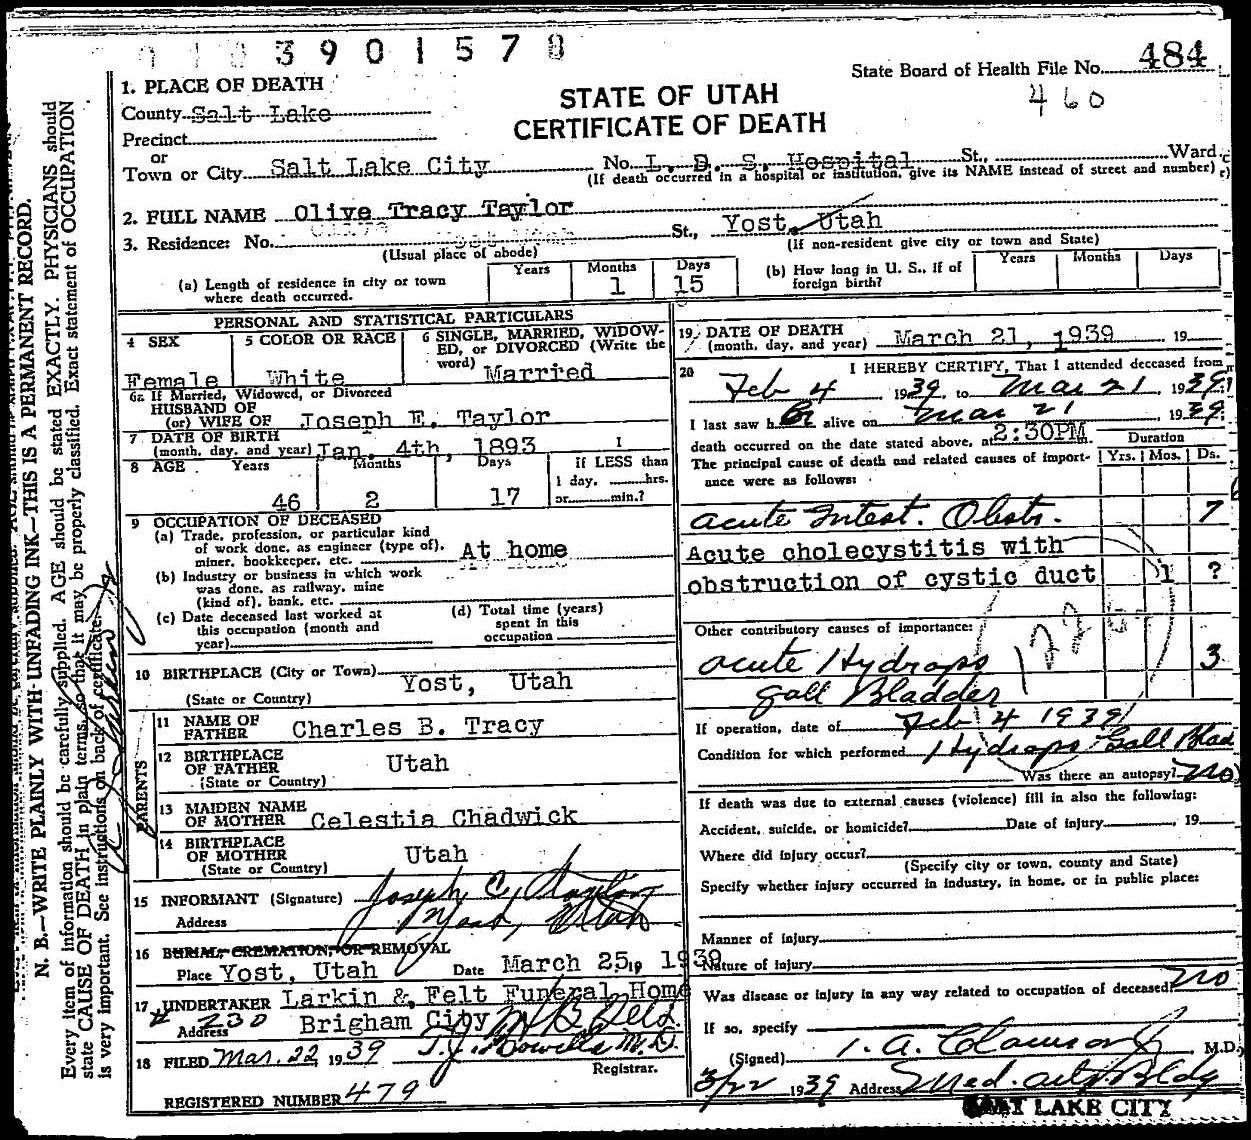 3901578
State Board of Health File No. 484
460
1. PLACE OF DEATH
STATE OF UTAH
CERTIFICATE OF DEATH
County Salt Lake
Precinct
or
Town or City Salt Lake City No. L. D. S. Hospital St., Ward
(If death occurred in a hospital or institution, give its NAME instead of street and number)
2. FULL NAME Olive Tracy Taylor
3. Residence: No. St., Yost, Utah
(Usual place of abode) (If non-resident give city or town and State)
(a) Length of residence in city or town where death occurred. Years Months 1 Days 15
(b) How long in U. S., if of foreign birth? Years Months Days
PERSONAL AND STATISTICAL PARTICULARS
4 SEX Female
5 COLOR OR RACE White
6 SINGLE, MARRIED, WIDOWED, or DIVORCED (Write the word) Married
6a If Married, Widowed, or Divorced
HUSBAND OF
(or) WIFE OF Joseph E. Taylor
7 DATE OF BIRTH
(month, day, and year) Jan. 4th, 1893
8 AGE Years 46 Months 2 Days 17
If LESS than
1 day, hrs.
or min.?
9 OCCUPATION OF DECEASED
(a) Trade, profession, or particular kind
of work done, as engineer (type of),
miner, bookkeeper, etc. At home
(b) Industry or business in which work
was done, as railway, mine
(kind of), bank, etc.
(c) Date deceased last worked at
this occupation (month and
year)
(d) Total time (years)
spent in this
occupation
10 BIRTHPLACE (City or Town) Yost, Utah
(State or Country)
PARENTS
11 NAME OF
FATHER Charles B. Tracy
12 BIRTHPLACE
OF FATHER Utah
(State or Country)
13 MAIDEN NAME
OF MOTHER Celestia Chadwick
14 BIRTHPLACE
OF MOTHER Utah
(State or Country)
15 INFORMANT (Signature) Joseph E. Taylor
Address Yost, Utah
16 BURIAL, CREMATION, OR REMOVAL
Place Yost, Utah Date March 25, 19 1939
17 UNDERTAKER Larkin & Felt Funeral Home
# 230
Address Brigham City
18 FILED Mar. 22, 1939 T. J. Howells M.D.
Registrar.
REGISTERED NUMBER 479
19 DATE OF DEATH
(month, day, and year) March 21, 1939 19
20 I HEREBY CERTIFY, That I attended deceased from
Feb 4 1939, to Mar 21, 1939
I last saw her alive on Mar 21, 1939
death occurred on the date stated above, at 2:30PM
The principal cause of death and related causes of importance were as follows:
Duration
Yrs. Mos. Ds.
Acute Intest. Obstr. 7
Acute cholecystitis with
obstruction of cystic duct 1 ?
Other contributory causes of importance:
Acute Hydrops 3
Gall Bladder
If operation, date of Feb 4 1939
Condition for which performed Hydrops Gall Blad
Was there an autopsy? No
If death was due to external causes (violence) fill in also the following:
Accident, suicide, or homicide? Date of injury , 19
Where did injury occur?
(Specify city or town, county and State)
Specify whether injury occurred in industry, in home, or in public place:
Manner of injury
Nature of injury
Was disease or injury in any way related to occupation of deceased? No
If so, specify
(Signed) I. A. Clawson Jr M.D.
3/22 1939 Address Med. Arts Bldg
SALT LAKE CITY
N. B.—WRITE PLAINLY WITH UNFADING INK—THIS IS A PERMANENT RECORD.
Every item of information should be carefully supplied. AGE should be stated EXACTLY. PHYSICIANS should
state CAUSE OF DEATH in plain terms, so that it may be properly classified. Exact statement of OCCUPATION
is very important. See instructions on back of certificate.